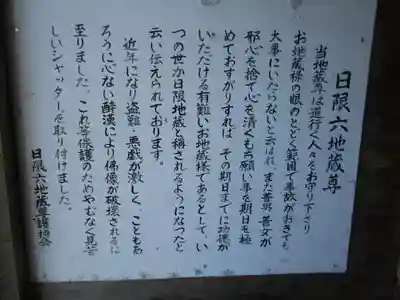 日限六地蔵尊
当地蔵尊は道行く人々をお守り下さり
お地蔵様の眼のとどく範囲で事故がおきても
大事にいたらないと云はれ、また善男善女が
邪心を捨て心を清くもち願い事を期日を極
めておすがりすれば、その期日までに功徳が
いただける有難いお地蔵様であるとして、い
つの世か日限地蔵と称されるようになったと
云い伝えられております。
近年になり盗難・悪戯が激しく、こともあ
ろうに心ない酔漢により佛像が破壊されるに
至りました。これ等保護のためやむなく見苦
しいシャッターを取り付けました。
日限六地蔵尊護持会